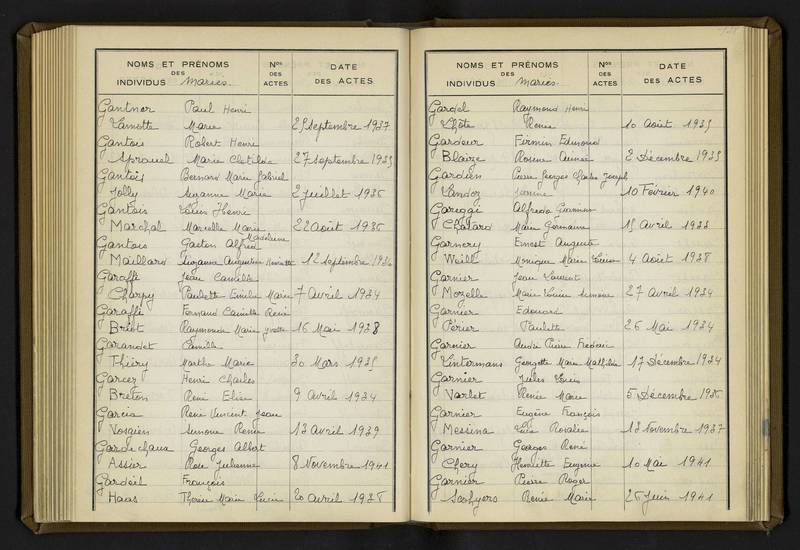 NOMS ET PRÉNOMS
DES
INDIVIDUS Mariés.
Nos
DES
ACTES
DATE
DES ACTES
Gantner Paul Henri
Lamotte Marie 25 Septembre 1937
Gantois Robert Henri
Aprouel Marie Clotilde 27 Septembre 1935
Gantois Bernard Marie Gabriel
Jolly Suzanne Marie 2 Juillet 1936
Gantois Louis Henri
Marchal Marcelle Marie 22 août 1936
Gantois Gaston Alfred Madeleine
Maillard Suzanne Augustine Henriette 12 Septembre 1936
Garaffi Jean Camille
Charpy Paulette Emilie Marie 7 avril 1934
Garaffi Fernand Camille René
Briot Raymonde Marie Yvette 16 Mai 1938
Garandet Camille
Thiéry Marthe Marie 30 Mars 1935
Garcer Henri Charles
Breton René Elise 9 avril 1934
Garcia René Vincent Jean
Vosgien Simone Renée 13 avril 1939
Gardechaux Georges Albert
Assier Rose Julienne 8 Novembre 1941
Gardeil François
Haas Thérèse Marie Lucie 20 avril 1938
NOMS ET PRÉNOMS
DES
INDIVIDUS Mariés.
Nos
DES
ACTES
DATE
DES ACTES
Gardel Raymond Henri
Lhôte Renée 10 Août 1935
Gardeur Firmin Edmond
Blaize Rosine Aimée 2 Décembre 1935
Gardien Pierre Georges Charles Joseph
Landoz 10 Février 1940
Gareggi Alfredo
Chatard Marie Germaine 15 Avril 1933
Garnery Ernest Auguste
Weill Monique Marie Louise 4 Août 1938
Garnier Jean Laurent
Mozelle Marie Louise Simone 27 Avril 1934
Garnier Edouard
Périer Paulette 26 Mai 1934
Garnier André Pierre
Lintermans Georgette Marie Mathilde 17 Décembre 1934
Garnier Jules Louis
Varlet Renée Marie 5 Décembre 1936
Garnier Eugène François
Messina Rosalie 13 Novembre 1937
Garnier Georges René
Chery Henriette Eugénie 10 Mai 1941
Garnier Pierre Roger
Renée Marie 26 Juin 1941